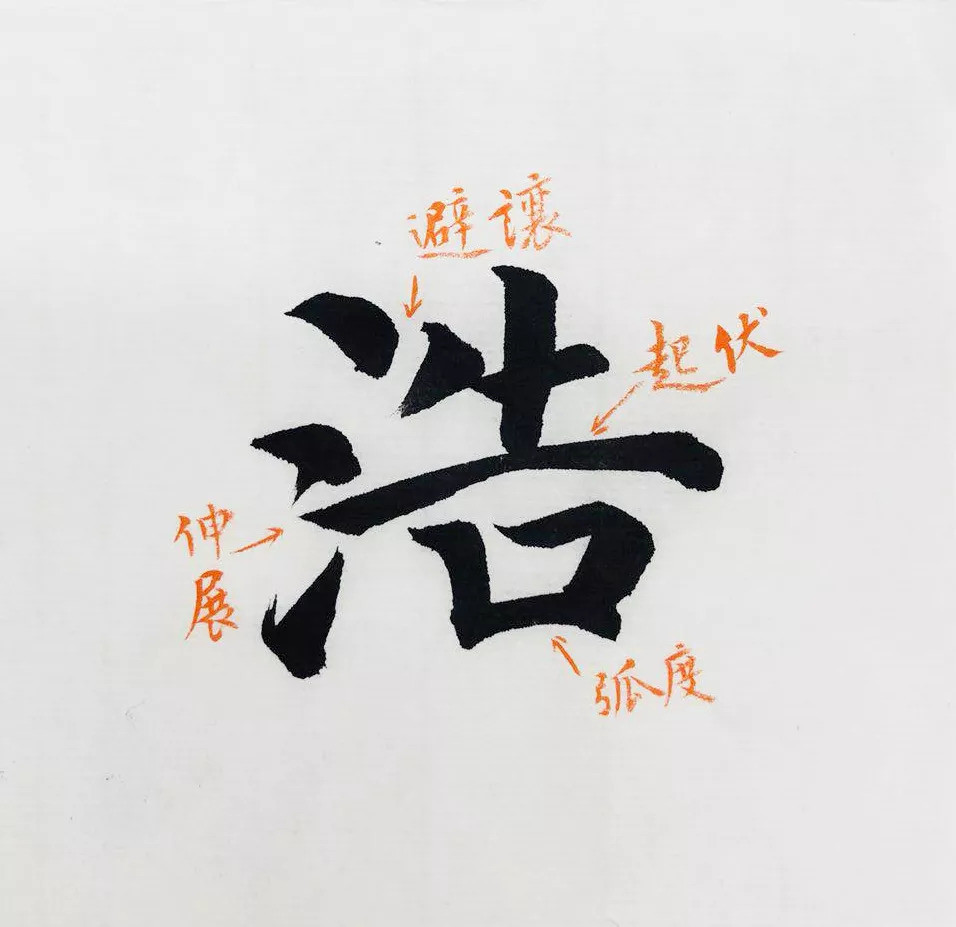 避讓
浩
起伏
伸
展
弧度